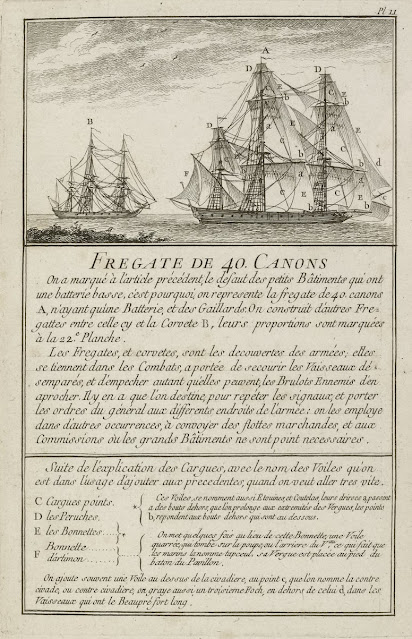 Pl 11
A
D
D
B
F
E
E
C
C
a
a
b
b
d
FREGATE DE 40. CANONS
On a marqué à l'article précédent, le défaut des petits Bâtiments qui ont
une batterie basse, c'est pourquoi, on représente la fregate de 40. canons
A, n'ayant qu'une Batterie, et des Gaillards. On construit d'autres Fre-
gattes entre celle cy et la Corvete B, leurs proportions sont marquées
à la 22.e Planche.
Les Fregates, et corvetes, sont les decouvertes des armées; elles
se tiennent dans les Combats, a portée de secourir les Vaisseaux dé-
semparés, et d'empecher autant qu'elles peuvent, les Brulots Ennemis d'en
aprocher. Il y en a que l'on destine, pour repéter les signaux, et porter
les ordres du général aux différents endroits de l'armée: on les employe
dans d'autres occurrences, à convoyer des flottes marchandes, et aux
Commissions où les grands Bâtiments ne sont point necessaires.
Suite de l'explication des Cargues, avec le nom des Voiles qu'on
est dans l'usage d'ajouter aux precedentes, quand on veut aller tres vite.
C Cargues points.
D les Peruches.
E les Bonnettes....
F Bonnette
d'artimon.......
Ces Voiles, se nomment aussi, Etuines, et Coutelas, leurs drisses a, passent
a des bouts dehors, que l'on prolonge aux extremités des Vergues, les points
b, repondent aux bouts dehors qui sont au dessous.
On met quelques fois au lieu de cette Bonnette, une Voile
quarrée, qui tombe sur la poupe, ou l'arriere du V.au ce qui fait que
les marins la nomme tapecul. sa Vergue est placée au pied du
baton du Pavillon.
On ajoute souvent une Voile au dessus de la civadiere, au point c, que l'on nomme la contre
civade, ou contre civadiere, on graye aussi un troisieme Foch, en dehors de celui d, dans les
Vaisseaux qui ont le Beaupré fort long.